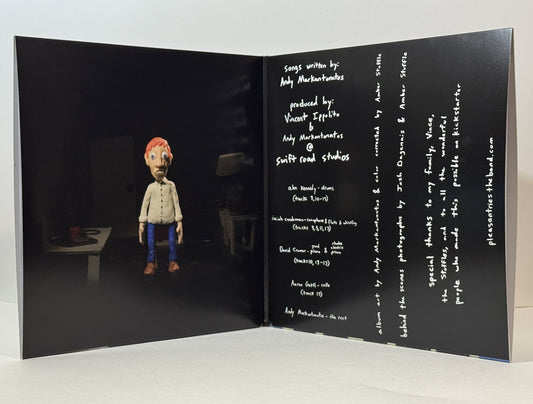 songs written by:
Andy Markantonatos
produced by:
Vincent Ippolito
&
Andy Markantonatos
@
swift road studios
alex Kennedy - drums
(tracks
saxophone & flute & whistling
(tracks 3, 5, 11, 13)
David Cramer - grand piano & rhodes electric piano
(tracks 10, 12-13)
Aaron - cello
(track 13)
Andy Markantonatos - the rest
album art by Andy Markantonatos & color corrected by Amber Stoffle
behind the scenes photographs by Josh Daginnis & Amber Stoffle
special thanks to my family, Vince,
the Stoffles, and to all the wonderful
people who made this possible on kickstarter
pleasantries-the-band.com